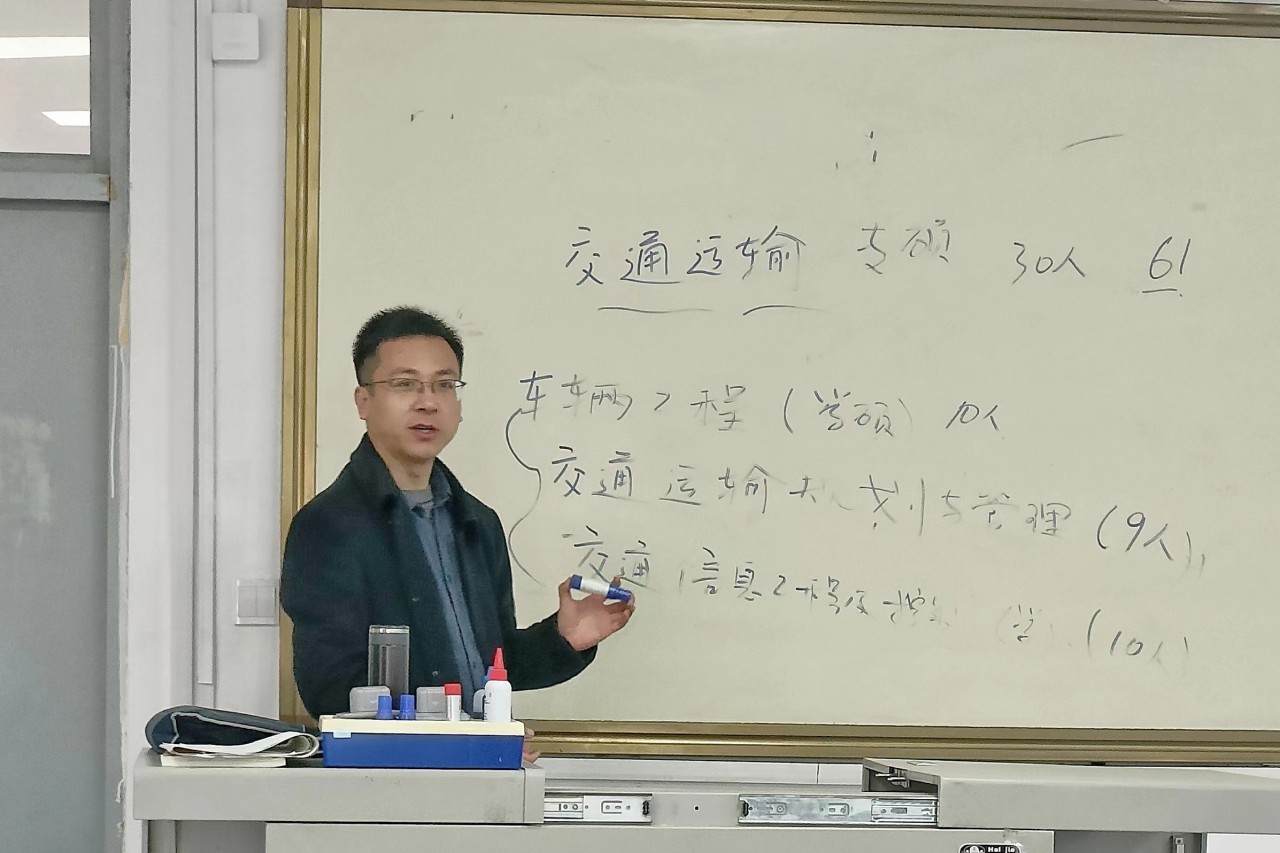 交通运输 专硕 30人 61
车辆工程 (学硕) 10人
交通运输规划与管理 (9人)
交通信息工程及控制 (学) (10人)
Hai jie